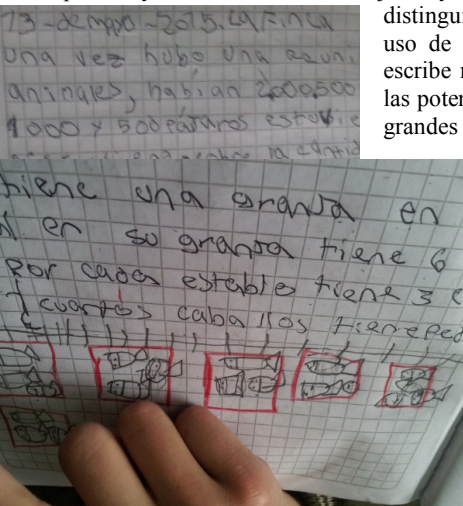 13-de mayo-2015. La Finca
Una vez hubo una reuni
animales, habian 2000,500
1000 y 500 pájaros
la cantid
distingui
uso de
escribe
las poten
grandes
tiene una granja en
en su granja tiene 6
Por cada estable tiene 3 c
¿cuantos caballos tiene ped